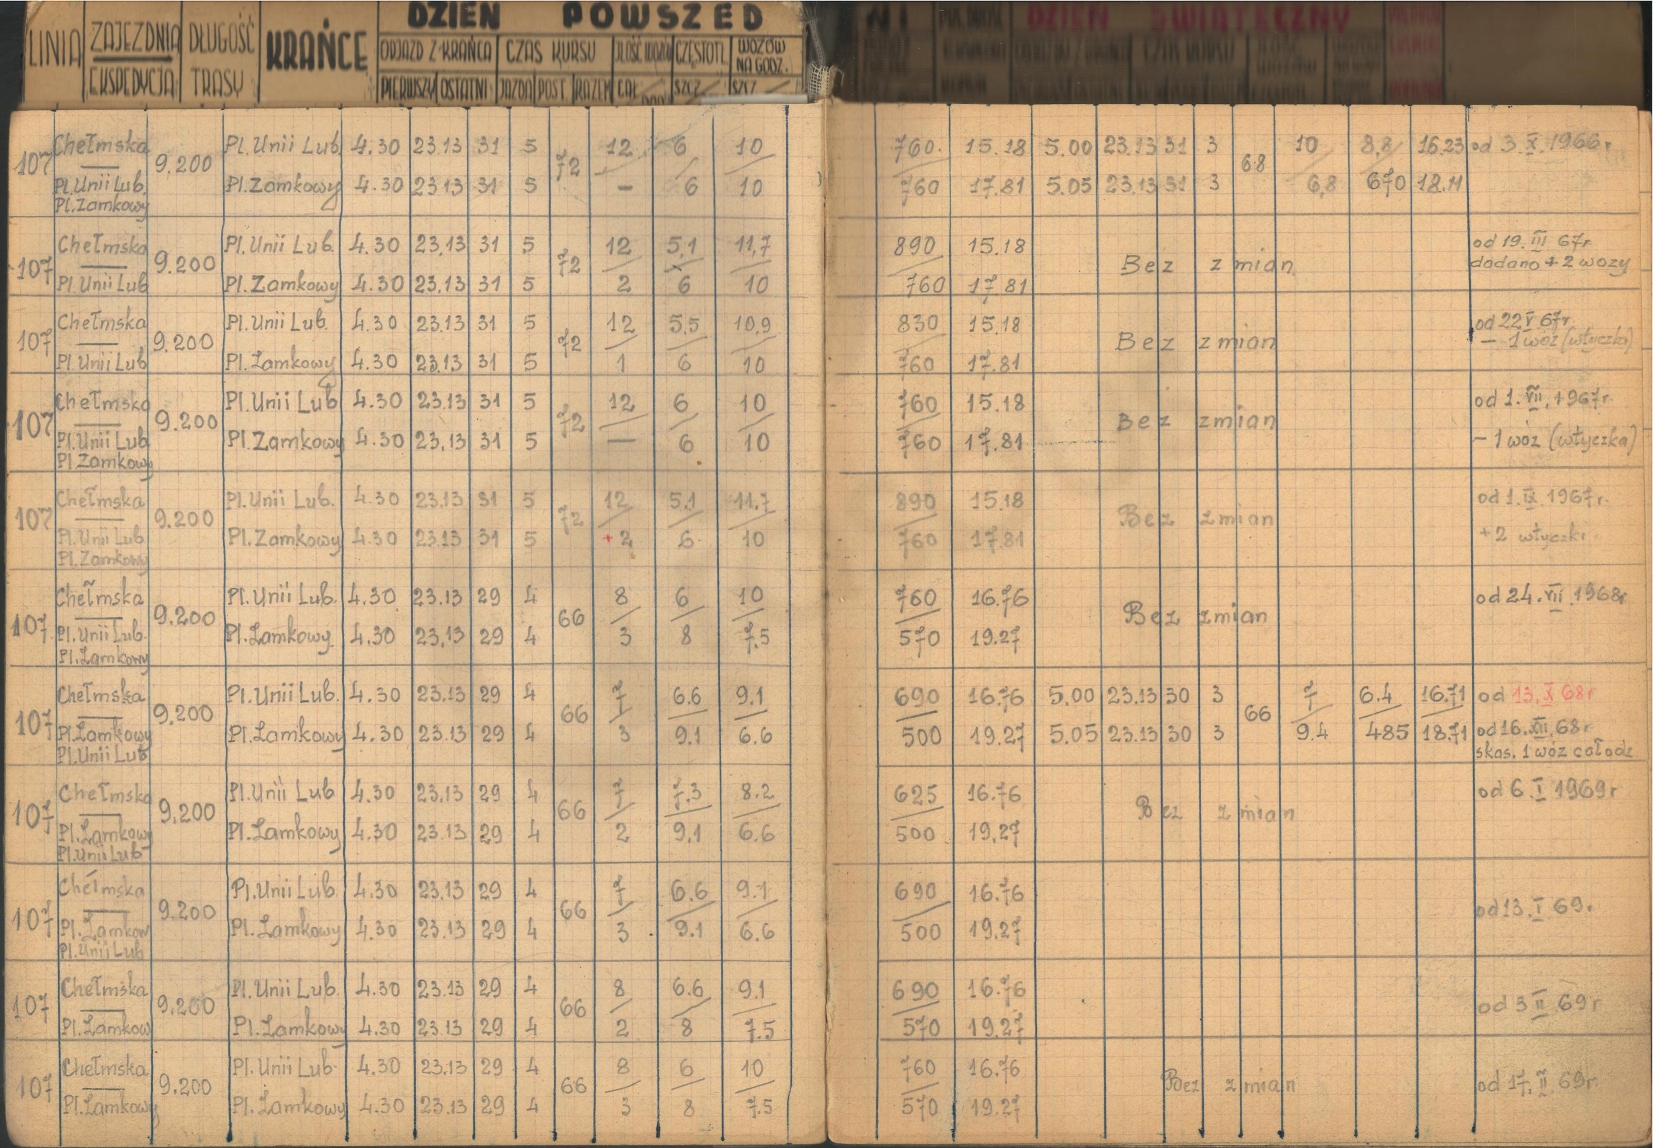 DZIEŃ POWSZED
LINIA ZAJEZDNIA DŁUGOŚĆ KRAŃCE ODJAZD Z KRAŃCA CZAS KURSU CZĘSTOTL WOZÓW
EKSPEDYCJA TRASY NA GODZ.
PIERWSZY OSTATNI JAZDA POST. RAZEM CAŁ SZCZ. SZCZ
DZIEŃ ŚWIĄTECZNY
107 Chełmska 9.200 Pl. Unii Lub. 4.30 23.13 31 5 72 12 6 10 760. 15.18 5.00 23.13 31 3 68 10 8,8 16.23 od 3.X.1966r
Pl. Unii Lub. Pl. Zamkowy 4.30 23.13 31 5 – 6 10 760 17.81 5.05 23.13 31 3 6,8 670 18.11
Pl. Zamkowy
107 Chełmska 9.200 Pl. Unii Lub. 4.30 23.13 31 5 72 12 5,1 11,7 890 15.18 Bez zmian od 19.III 67r.
Pl. Unii Lub Pl. Zamkowy 4.30 23.13 31 5 2 6 10 760 17.81 dodano + 2 wozy
107 Chełmska 9.200 Pl. Unii Lub. 4.30 23.13 31 5 72 12 5,5 10,9 830 15.18 Bez zmian od 22 V 67r.
Pl. Unii Lub Pl. Zamkowy 4.30 23.13 31 5 1 6 10 760 17.81 – 1 wóz (wtyczka)
107 Chełmska 9.200 Pl. Unii Lub 4.30 23.13 31 5 72 12 6 10 760 15.18 Bez zmian od 1.VII.1967r.
Pl. Unii Lub Pl. Zamkowy 4.30 23.13 31 5 — 6 10 760 17.81 – 1 wóz (wtyczka)
Pl. Zamkowy
107 Chełmska 9.200 Pl. Unii Lub. 4.30 23.13 31 5 72 12 5,1 11,7 890 15.18 Bez zmian od 1.IX.1967r.
Pl. Unii Lub Pl. Zamkowy 4.30 23.13 31 5 + 2 6 10 760 17.81 + 2 wtyczki
Pl. Zamkowy
107 Chełmska 9.200 Pl. Unii Lub. 4.30 23.13 29 4 66 8 6 10 760 16.76 Bez zmian od 24.VII.1968r
Pl. Unii Lub. Pl. Zamkowy. 4.30 23.13 29 4 3 8 7.5 570 19.27
Pl. Zamkowy
107 Chełmska 9.200 Pl. Unii Lub. 4.30 23.13 29 4 66 7 6.6 9.1 690 16.76 5.00 23.13 30 3 66 7 6.4 16.71 od 13.X 68r
Pl. Zamkowy Pl. Zamkowy 4.30 23.13 29 4 3 9.1 6.6 500 19.27 5.05 23.13 30 3 9.4 485 18.71 od 16.XII.68r
Pl. Unii Lub skas. 1 wóz całodz
107 Chełmska 9.200 Pl. Unii Lub 4.30 23.13 29 4 66 7 7.3 8.2 625 16.76 Bez zmian od 6 I 1969r
Pl. Zamkowy Pl. Zamkowy 4.30 23.13 29 4 2 9,1 6.6 500 19.27
Pl. Unii Lub
107 Chełmska 9.200 Pl. Unii Lub. 4.30 23.13 29 4 66 7 6.6 9.1 690 16.76 od 13.I 69.
Pl. Zamkow Pl. Zamkowy 4.30 23.13 29 4 3 9.1 6.6 500 19.27
Pl. Unii Lub
107 Chełmska 9.200 Pl. Unii Lub. 4.30 23.13 29 4 66 8 6.6 9.1 690 16.76 od 3 II 69r
Pl. Zamkow Pl. Zamkowy 4.30 23.13 29 4 2 8 7.5 570 19.27
107 Chełmska 9.200 Pl. Unii Lub. 4.30 23.13 29 4 66 8 6 10 760 16.76 Bez zmian od 17.II 69r.
Pl. Zamkowy Pl. Zamkowy 4.30 23.13 29 4 3 8 7.5 570 19.27